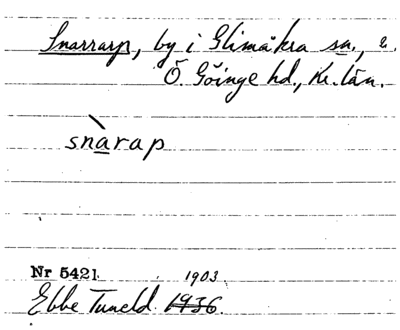 Snarrarp, by i Glimåkra sn.,
Ö. Göinge hd., Kr. län.
snàrap
Nr 5421. 1903.
Ebbe Tuneld. 1936.